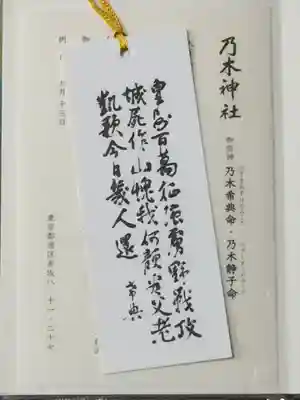 乃木神社
御祭神
乃木希典命・乃木静子命
皇師百萬征強虜野戰攻
城屍作山愧我何顔看父老
凱歌今日幾人還
希典
例
九月十三日
東京都港区赤坂八ー十一ー二十七